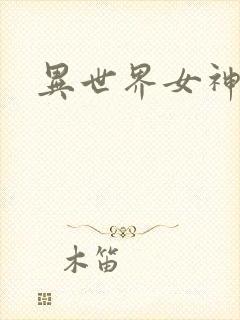 異世界女神
木笛